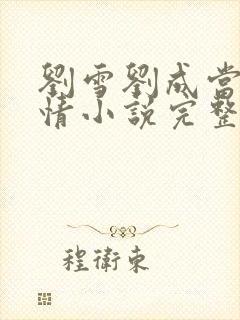 劉雪劉成當
情小說完整
程衛東